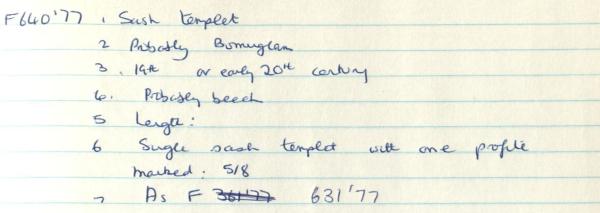 F640'77 1 Sash templet
2 Probably Birmingham
3. 19th or early 20th century
4. Probably beech
5 Length:
6 Single sash templet with one profile
marked: 5/8
7 As F 361'77 631'77